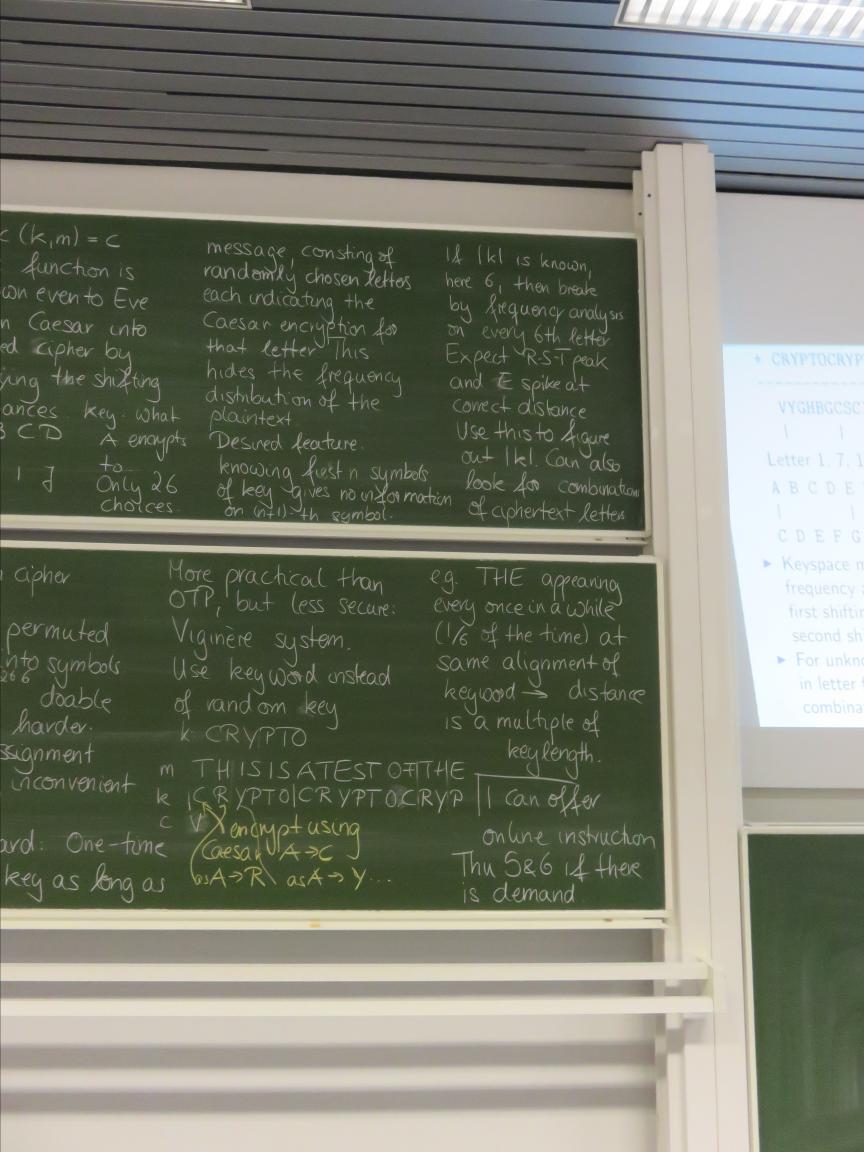 c (k,m) = c
function is
own even to Eve
n Caesar into
ed cipher by
ying the shifting
ances. key: what
B C D A encrypts
to
I J Only 26
choices.
message, consting of
randomly chosen letters
each indicating the
Caesar encryption for
that letter. This
hides the frequency
distribution of the
plaintext
Desired feature:
knowing first n symbols
of key gives no information
on (n+1)-th symbol.
If |k| is known,
here 6, then break
by frequency analysis
on every 6th letter
Expect R-S-T peak
and E spike at
correct distance
Use this to figure
out |k|. Can also
look for combinations
of ciphertext letters
cipher
permuted
into symbols
doable
harder.
ssignment
inconvenient
ard: One-time
key as long as
More practical than
OTP, but less secure:
Viginère system.
Use keyword instead
of random key
k CRYPTO
m THIS IS A TEST OF THE
k |CRYPTO|CRYPTOCRYP
c V
encrypt using
Caesar A→C
as A→R as A→Y...
e.g. THE appearing
every once in a while
(1/6 of the time) at
same alignment of
keyword → distance
is a multiple of
keylength.
I can offer
online instruction
Thu 5&6 if there
is demand.
+ CRYPTOCRYP
VYGHBGCSC
| |
Letter 1, 7, 1
A B C D E
| |
C D E F G
▸ Keyspace m
frequency a
first shiftin
second sh
▸ For unkno
in letter f
combina